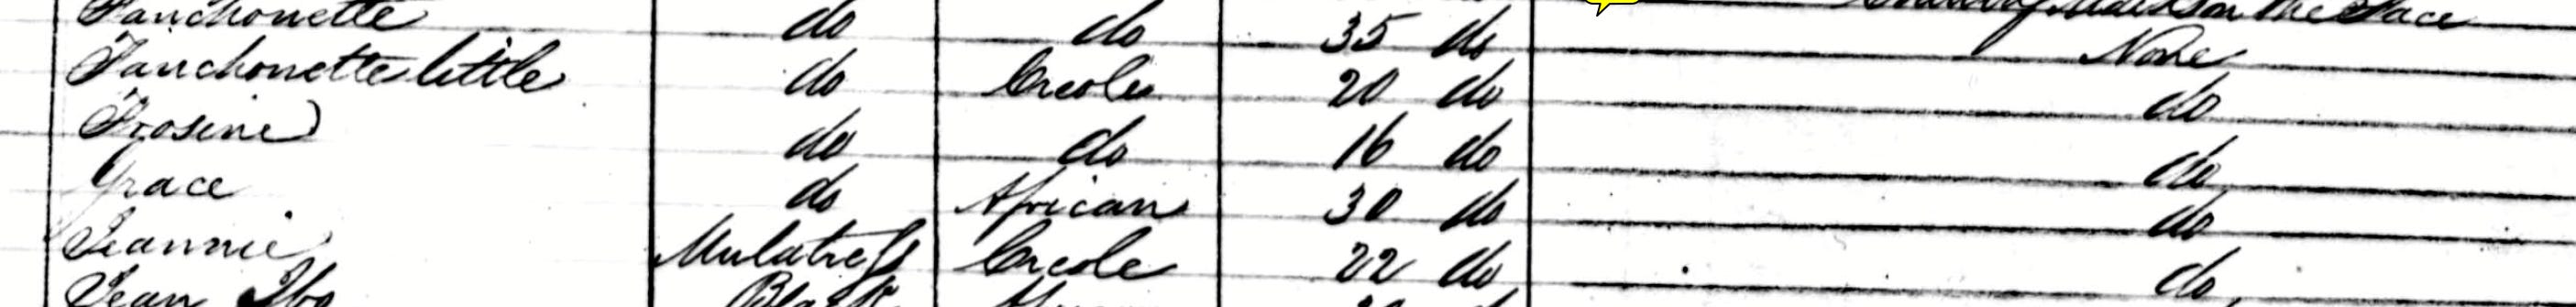 Fanchonette do do 35 do the Place
Fanchonette little do Creole 20 do None
Frosine do do 16 do do
Grace do African 30 do do
Jeannie Mulatress Creole 22 do do
Jean Ibo Black do